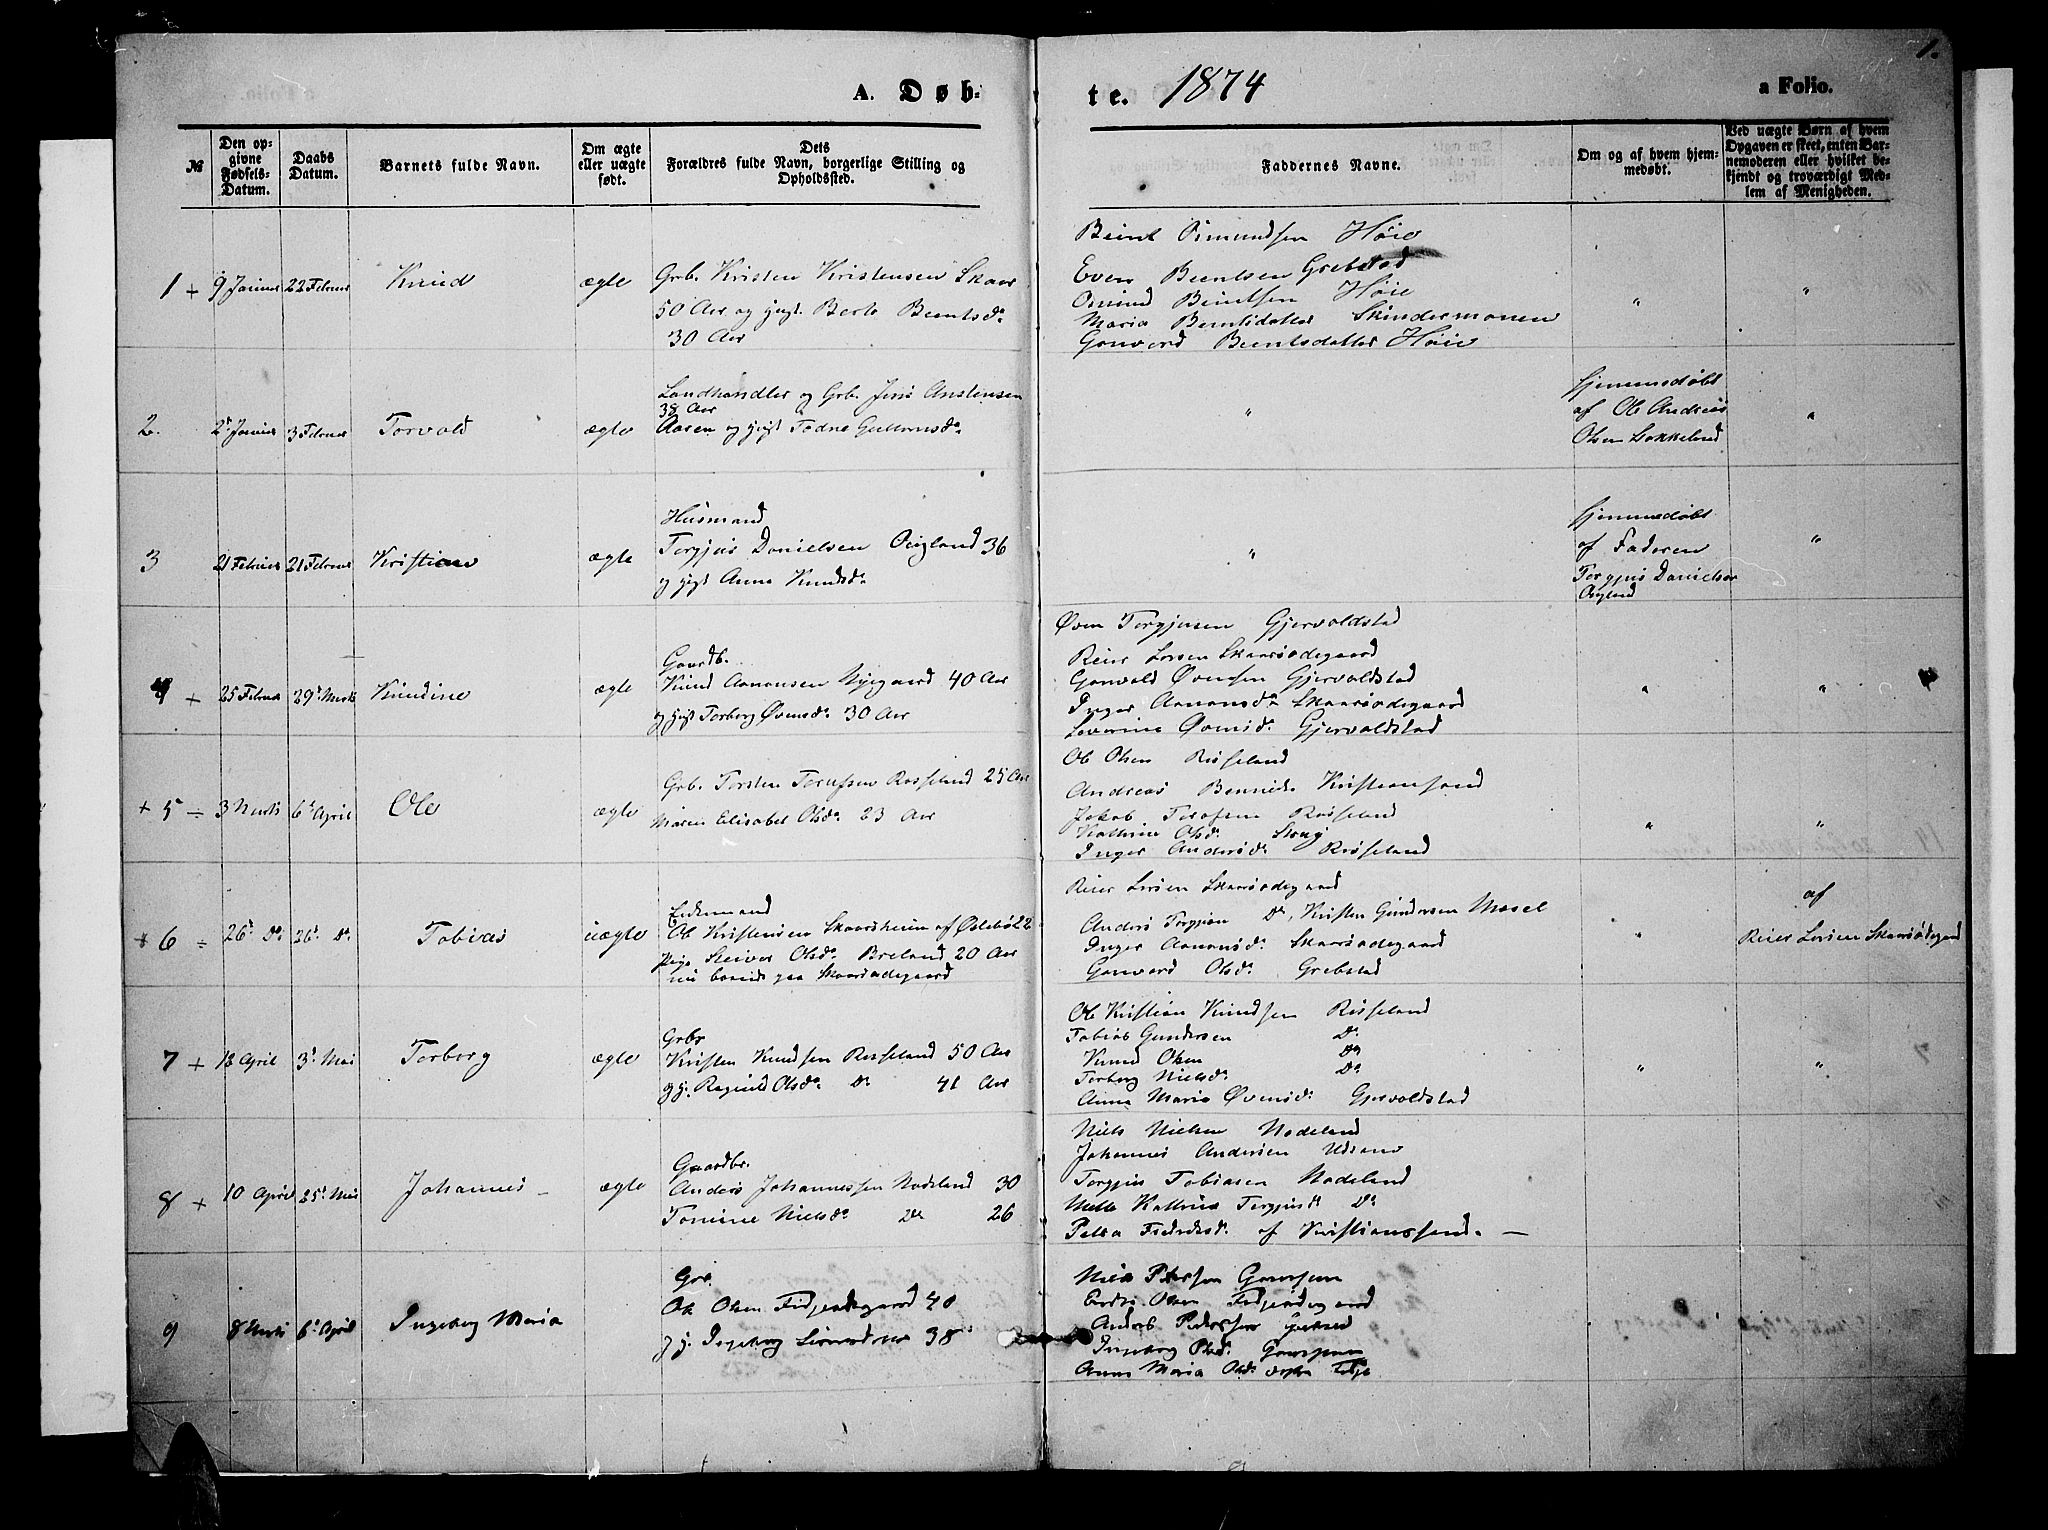 1.
A. Døb-
te. 1874
a Folio.
№
Den op-
givne
Fødsels-
Datum.
Daabs
Datum.
Barnets fulde Navn.
Om ægte
eller uægte
født.
Dets
Forældres fulde Navn, borgerlige Stilling og
Opholdssted.
Faddernes Navne.
Om og af hvem hjem-
medøbt.
Ved uægte Børn af hvem
Opgaven er skeet, enten Bar-
nemoderen eller hvilket be-
kjendt og troværdigt Med-
lem af Menigheden.
1 + 9 Januar 22 Februar Knud ægte
Grb. Kristen Kristensen Skaar
50 Aar og gift Berte Berntsd.
30 Aar
Bernt Omundsen Høie
Even Berntsen Grebstad
Omund Berntsen Høie
Maria Berntsdatter Skindermoen
Gonvord Berntsdatter Høie
" "
2. 2 Januar 3 Februar Torvald ægte
Landhandler og Grb. Jens Anstensen
38 Aar
Aasen og gift Todne Guttormsd.
"
hjemmedøbt
af Ole Andreas
Olsen Lokkeland
"
3 21 Februar 21 Februar Kristiane ægte
Husmand
Torgjus Danielsen Øigland 36
og gift Anna Knudsd.
"
hjemmedøbt
af Faderen
Torgjus Danielsen
Øigland
"
4 + 25 Februar 29 Marts Knudine ægte
Gaardb.
Knud Aanonsen Nygaard 40 Aar
og gift Torborg Øvensd. 30 Aar
Øven Torgjusen Gjervoldstad
Reier Larsen Skaarsødegaard
Gonvald Øvensen Gjervoldstad
Inger Aanonsd. Skaarsødegaard
Severine Øvensd. Gjervoldstad
" "
+ 5 ÷ 3 Marts 6 April Ole ægte
Grb. Torsten Torufsen Rosseland 25 Aar
Maren Elisabet Olsd. 23 Aar
Ole Olsen Rosseland
Andreas Kristiansand
Jakob Torufsen Rosseland
Kathrine Olsd. Skog
Inger Andersd. Rosseland
" "
+ 6 ÷ 26 Do. 26 Do. Tobias uægte
Enkemand
Ole Kristensen Skaarsheim af Øslebø 22
Pige Seiver Olsd. Breland 20 Aar
nu boende paa Skaarsødegaard
Reier Larsen Skaarsødegaard
Anders Torgjusen Do, Kristen Gundersen Mosel
Inger Aanonsd. Skaarsødegaard
Gonvord Olsd. Grebstad
"
af
Reier Larsen Skaarsødegaard
7 + 18 April 3 Mai Torborg ægte
Grbr
Kristen Knudsen Rosseland 50 Aar
og g. Ragnild Olsd. Do 41 Aar
Ole Kristian Knudsen Rosseland
Tobias Gundersen Do
Knud Olsen Do
Torborg Nielsd. Do
Anna Maria Øvensd. Gjervoldstad
" "
8 + 10 April 25 Mai Johannes - ægte
Gaardbr.
Anders Johannessen Nodeland 30
Tomine Nielsd. Do 26
Niels Nielsen Nodeland
Johannes Andersen
Torgjus Tobiasen Nodeland
Mette Kathrine Torgjusd. Do
Petra af Kristianssand. —
9 8 Marts 6 April Ingeborg Maria
Grb.
Ole Olsen Fidjeødegaard 40
og g. Ingeborg 38
Niels Pedersen
Endre Olsen Fidjeødegaard
Anders Pedersen
Ingeborg Olsd.
Anne Maria Olsd.